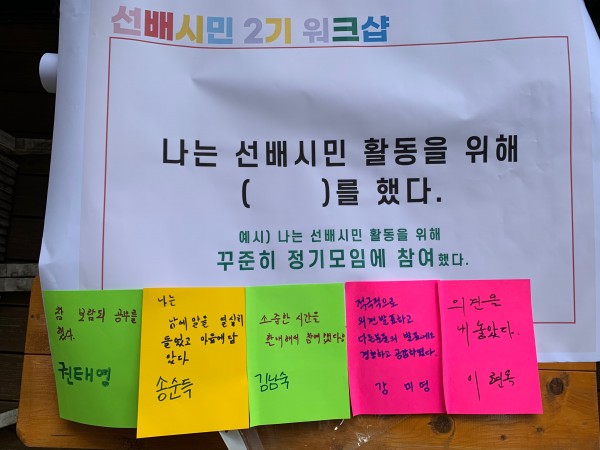 선배시민 2기 워크샵
나는 선배시민 활동을 위해
( )를 했다.
예시) 나는 선배시민 활동을 위해
꾸준히 정기모임에 참여했다.
참 보람의 공부를
했다.
권태영
나는
남에 말을 열심히
들었고 마음에 담
았다
송순득
소중한 시간을
할애해서 함께 했다
김남숙
적극적으로
의견발표하고
다른분들의 발표에도
경청하고 공감하였다.
강미영
의견을
내놓았다.
이현옥